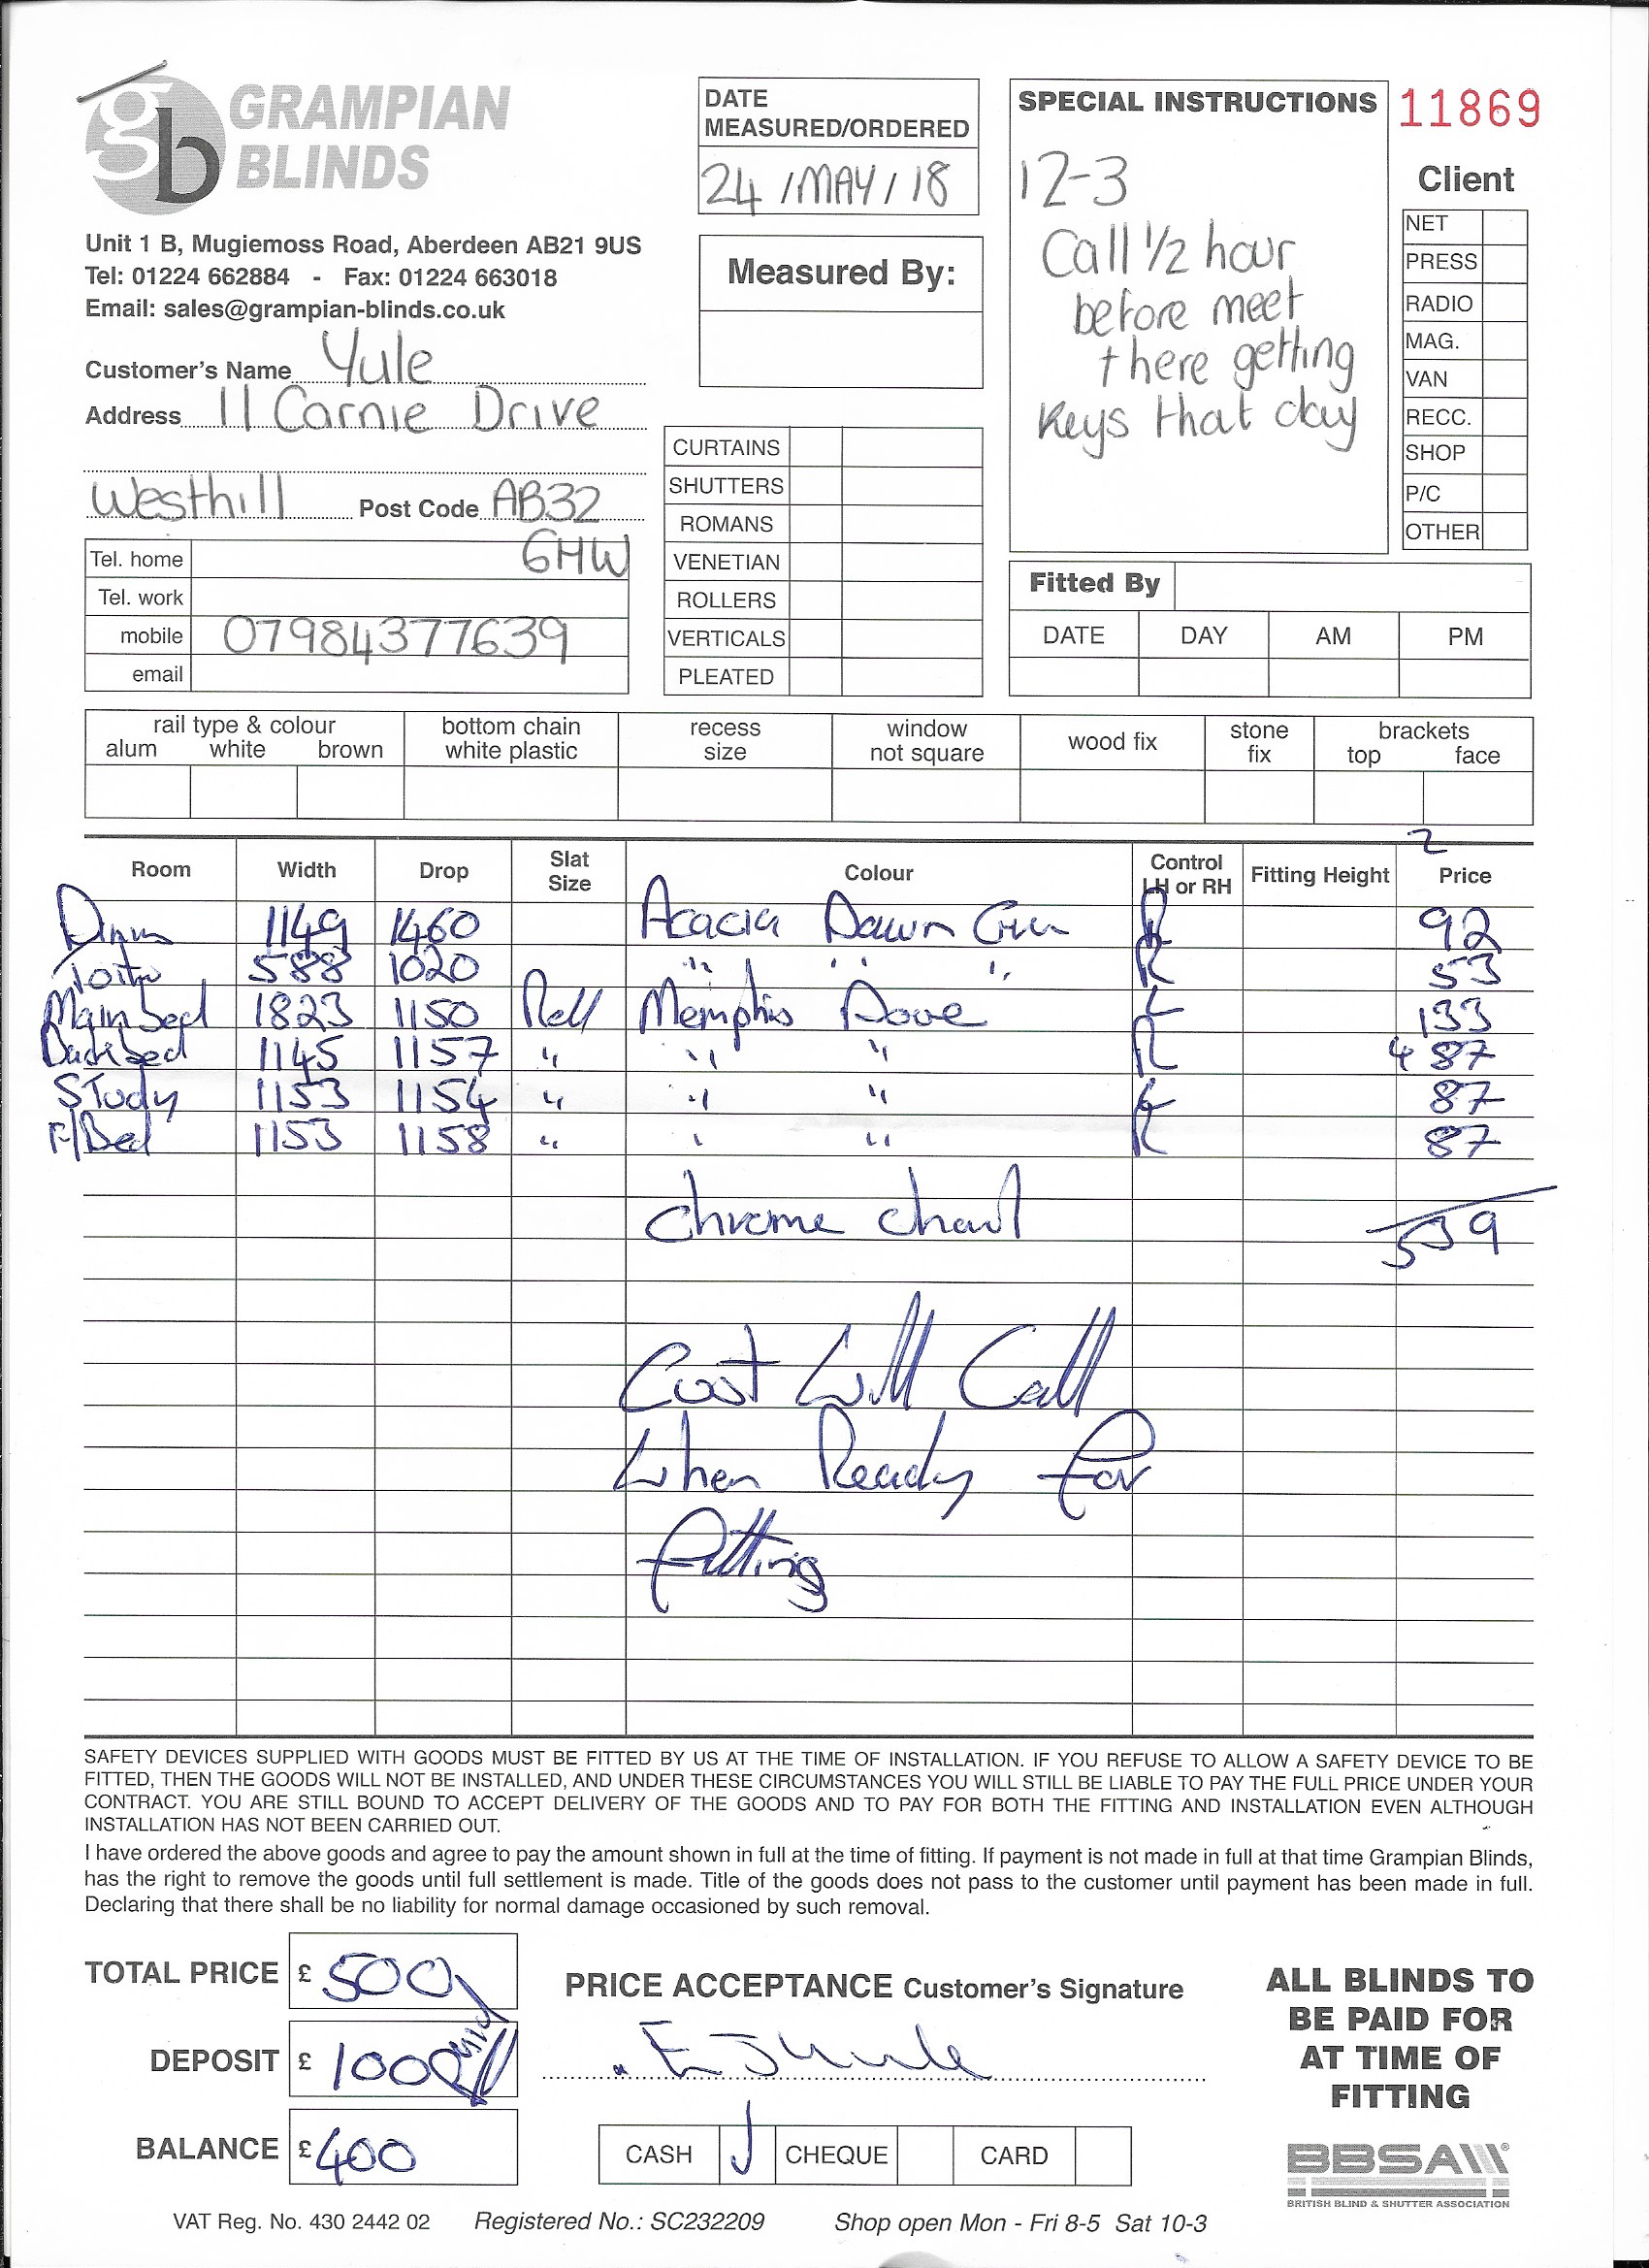 gb GRAMPIAN
BLINDS
Unit 1 B, Mugiemoss Road, Aberdeen AB21 9US
Tel: 01224 662884 - Fax: 01224 663018
Email: sales@grampian-blinds.co.uk
Customer's Name Yule
Address 11 Carnie Drive
Westhill Post Code AB32
6HW
Tel. home
Tel. work
mobile 07984377639
email
DATE
MEASURED/ORDERED
24/MAY/18
Measured By:
CURTAINS
SHUTTERS
ROMANS
VENETIAN
ROLLERS
VERTICALS
PLEATED
SPECIAL INSTRUCTIONS
12-3
Call 1/2 hour
before meet
there getting
keys that day
11869
Client
NET
PRESS
RADIO
MAG.
VAN
RECC.
SHOP
P/C
OTHER
Fitted By
DATE DAY AM PM
rail type & colour
alum white brown
bottom chain
white plastic
recess
size
window
not square
wood fix
stone
fix
brackets
top face
2
Room Width Drop Slat Size Colour Control LH or RH Fitting Height Price
1149 1460 Acacia Dawn R 92
588 1020 " " " R 53
Main bed 1823 1150 Roll Memphis Dove L 133
Back bed 1145 1157 " " " R 4 87
Study 1153 1154 " " " 87
F/Bed 1153 1158 " " " R 87
Chrome
539
Cust Will Call
When Ready for
fitting
SAFETY DEVICES SUPPLIED WITH GOODS MUST BE FITTED BY US AT THE TIME OF INSTALLATION. IF YOU REFUSE TO ALLOW A SAFETY DEVICE TO BE
FITTED, THEN THE GOODS WILL NOT BE INSTALLED, AND UNDER THESE CIRCUMSTANCES YOU WILL STILL BE LIABLE TO PAY THE FULL PRICE UNDER YOUR
CONTRACT. YOU ARE STILL BOUND TO ACCEPT DELIVERY OF THE GOODS AND TO PAY FOR BOTH THE FITTING AND INSTALLATION EVEN ALTHOUGH
INSTALLATION HAS NOT BEEN CARRIED OUT.
I have ordered the above goods and agree to pay the amount shown in full at the time of fitting. If payment is not made in full at that time Grampian Blinds,
has the right to remove the goods until full settlement is made. Title of the goods does not pass to the customer until payment has been made in full.
Declaring that there shall be no liability for normal damage occasioned by such removal.
TOTAL PRICE £ 500
DEPOSIT £ 100
BALANCE £ 400
PRICE ACCEPTANCE Customer's Signature
CASH CHEQUE CARD
ALL BLINDS TO
BE PAID FOR
AT TIME OF
FITTING
BBSA
BRITISH BLIND & SHUTTER ASSOCIATION
VAT Reg. No. 430 2442 02 Registered No.: SC232209 Shop open Mon - Fri 8-5 Sat 10-3